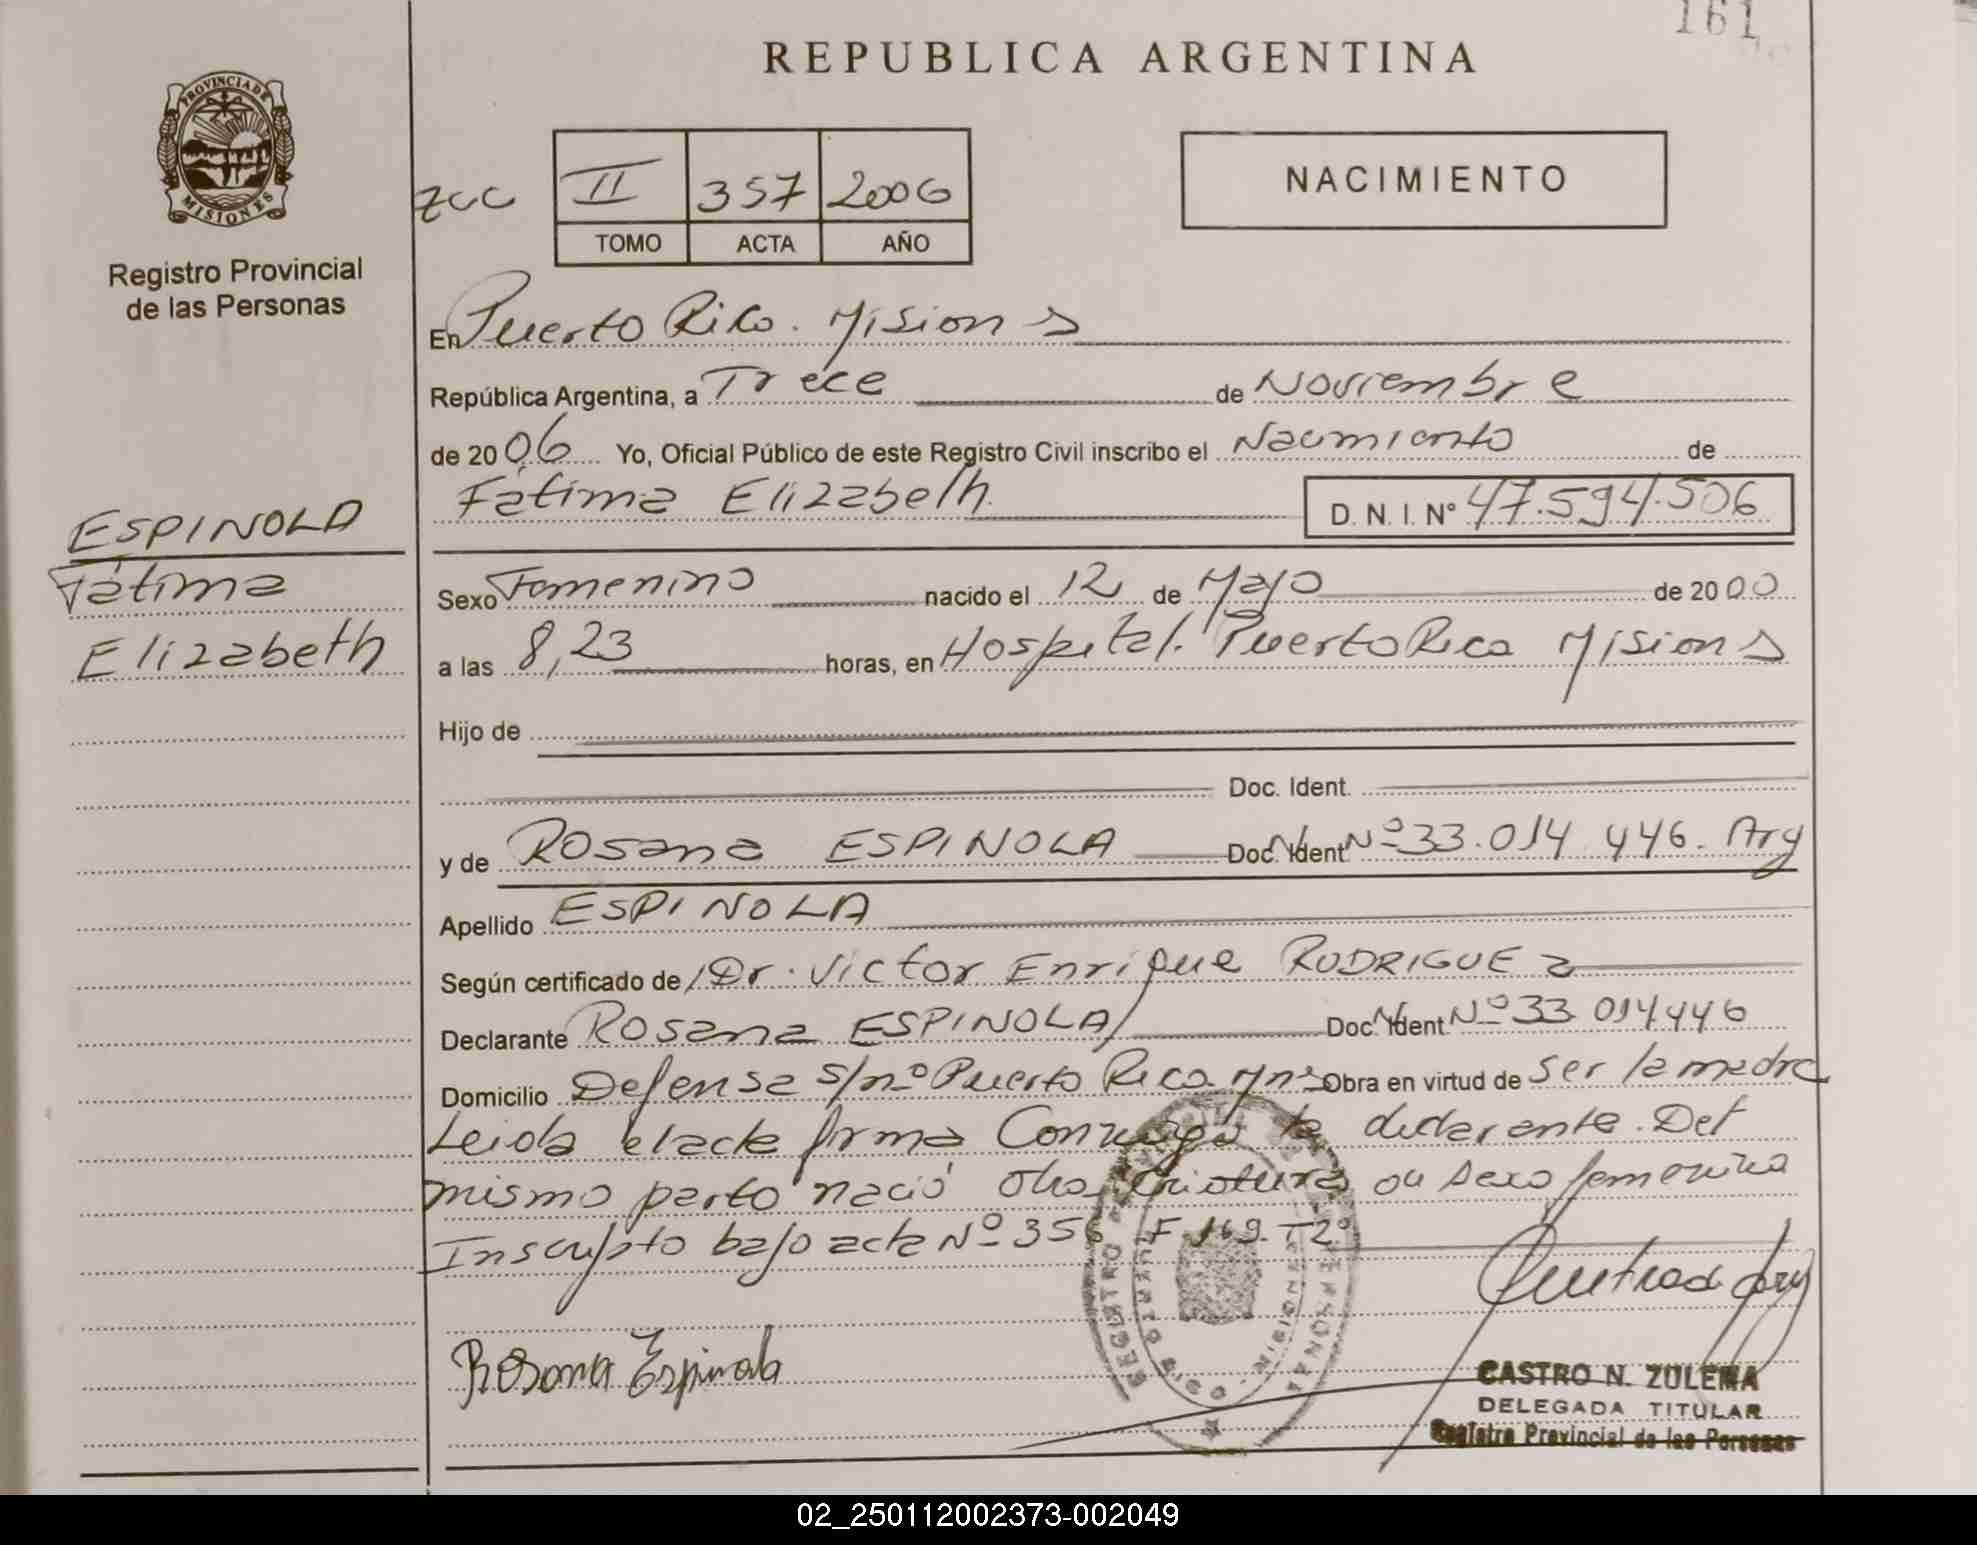 161
REPUBLICA ARGENTINA
PROVINCIA DE MISIONES
Registro Provincial
de las Personas
NACIMIENTO
II 357 2006
TOMO ACTA AÑO
En Puerto Rico. Misiones
República Argentina, a Trece de Noviembre
de 2006 Yo, Oficial Público de este Registro Civil inscribo el Nacimiento de
Fátima Elizabeth D. N. I. N° 47.594.506
ESPINOLA
Fátima
Elizabeth
Sexo Femenino nacido el 12 de Mayo de 2000
a las 8,23 horas, en Hospital. Puerto Rico Misiones
Hijo de
Doc. Ident.
y de Rosana ESPINOLA Doc. Ident Nº 33.014.446. Arg
Apellido ESPINOLA
Según certificado de Dr. Victor Enrique RODRIGUEZ
Declarante Rosana ESPINOLA Doc. Ident Nº 33 014446
Domicilio Defensa s/nº Puerto Rico Mnes Obra en virtud de ser la madre
Leida el acta firma Conmigo la declarante. Del
mismo parto nació otra criatura de sexo femenino
Inscripto bajo acta Nº 356 F 169. T2º
Rosana Espinola
CASTRO N. ZULEMA
DELEGADA TITULAR
Registro Provincial de las Personas
02_250112002373-002049